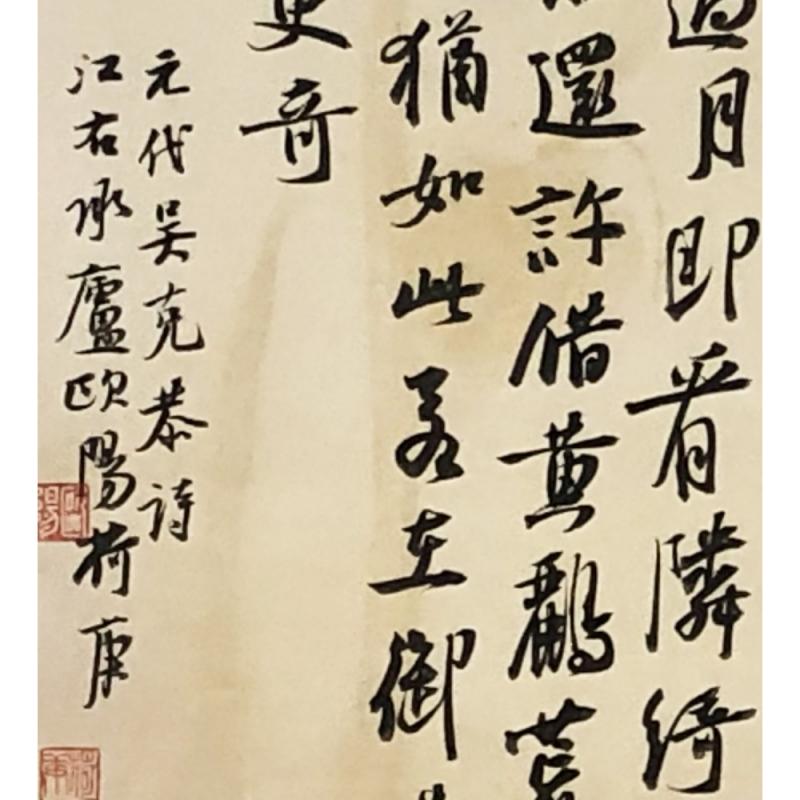 過月即看隣綺
還許借黃鸝
猶如此若在御
更奇
元代吴克恭詩
江右承廬歐陽荷庚